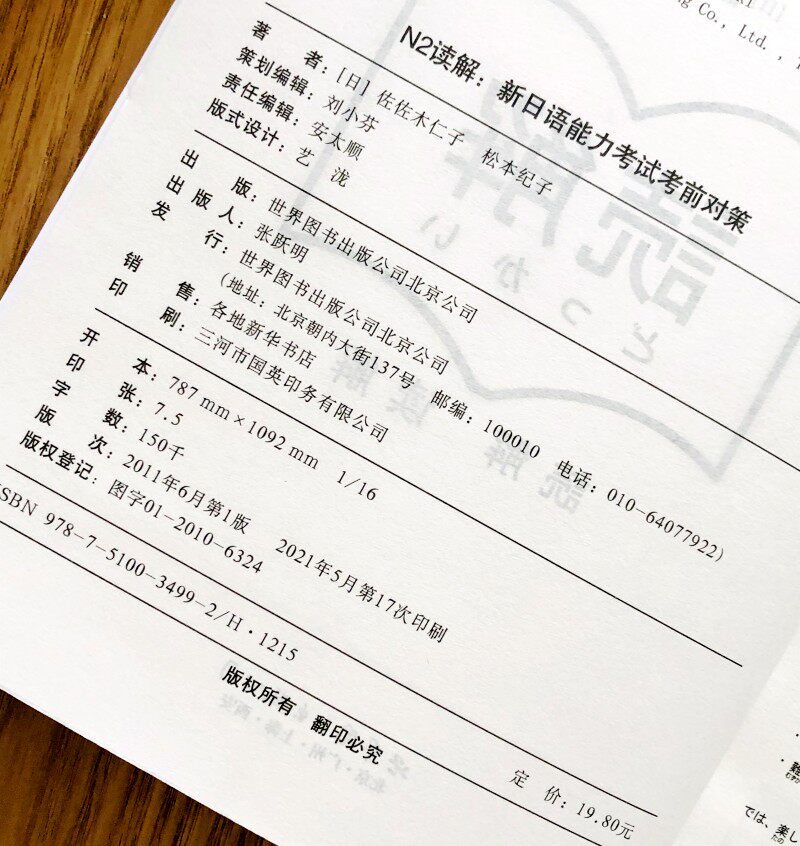 ng Co., Ltd.,
N2读解：新日语能力考试考前对策
著 者：［日］佐佐木仁子 松本纪子
策划编辑：刘小芬
责任编辑：安太顺
版式设计：艺 泷
出 版：世界图书出版公司北京公司
出 版 人：张跃明
发 行：世界图书出版公司北京公司
（地址：北京朝内大街137号 邮编：100010 电话：010-64077922）
销 售：各地新华书店
印 刷：三河市国英印务有限公司
开 本：787 mm×1092 mm 1/16
印 张：7.5
字 数：150千
版 次：2011年6月第1版 2021年5月第17次印刷
版权登记：图字01-2010-6324
ISBN 978-7-5100-3499-2/H·1215
版权所有 翻印必究
定 价：19.80元
では、楽し
たの